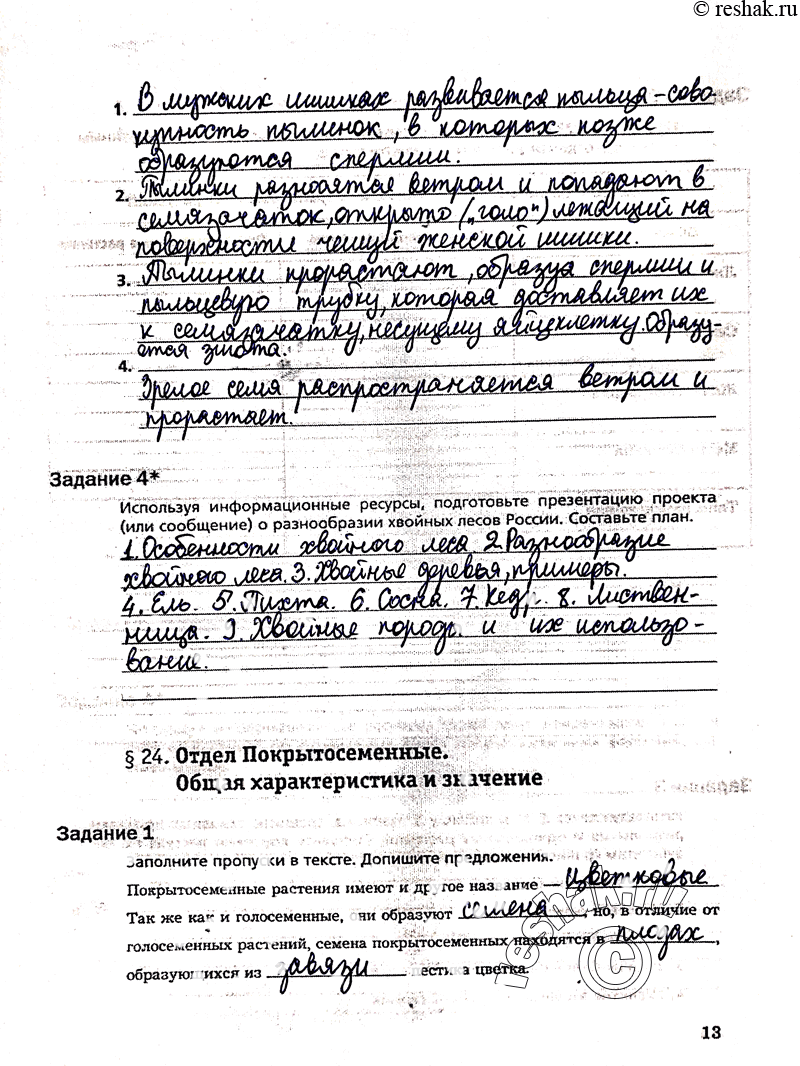 © reshak.ru
1. В мужских шишках развивается пыльца – сово
купность пылинок, в которых позже
образуются спермии.
2. Пылинки разносятся ветром и попадают в
семязачаток, открыто („голо“) лежащий на
поверхности чешуй женской шишки.
3. Пылинки прорастают, образуя спермии и
пыльцевую трубку, которая доставляет их
к семязачатку, несущему яйцеклетку. Образу-
ется зигота.
4.
Зрелое семя распространяется ветром и
прорастает.
Задание 4*
Используя информационные ресурсы, подготовьте презентацию проекта
(или сообщение) о разнообразии хвойных лесов России. Составьте план.
1. Особенности хвойного леса 2. Разнообразие
хвойного леса. 3. Хвойные деревья, примеры.
4. Ель. 5. Пихта. 6. Сосна. 7. Кедр. 8. Листвен-
ница. 9. Хвойные породы и их использо-
вание.
§ 24. Отдел Покрытосеменные.
Общая характеристика и значение
Задание 1
Заполните пропуски в тексте. Допишите предложения.
Покрытосеменные растения имеют и другое название – цветковые
Так же как и голосеменные, они образуют семена, но, в отличие от
голосеменных растений, семена покрытосеменных находятся в плодах,
образующихся из завязи пестика цветка.
reshak.ru
©
13